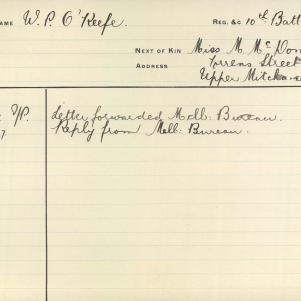 NAME W. P. O'Keefe. REG. &C 10th Batt
NEXT OF KIN Miss M. McDon
ADDRESS Torrens Street
Upper Mitcham
V.P. Letter forwarded Melb: Bureau.
7 Reply from Melb: Bureau.